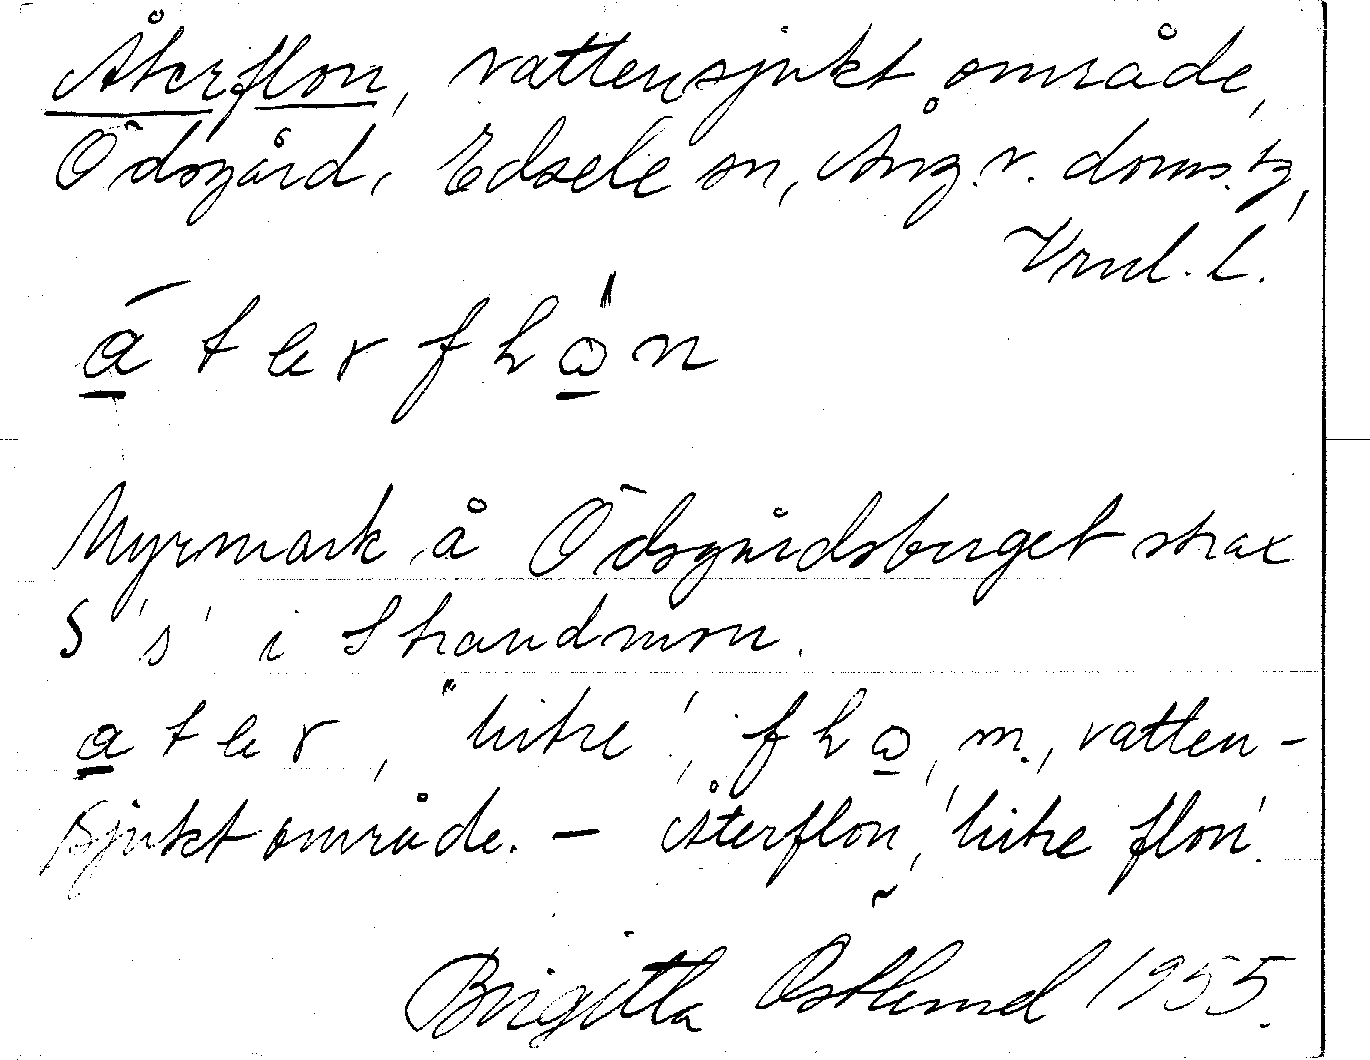 Återflon, vattensjukt område,
Ödsgård, Edsele sn, Ång. v. doms.
Vrnl. L.
Myrmark å Ödsgårdsberget strax
S 's' i Strandmon.
"hitre', m., vatten-
sjukt område. – Återflon, 'hitre flon'.
Birgitta Östlund 1955.